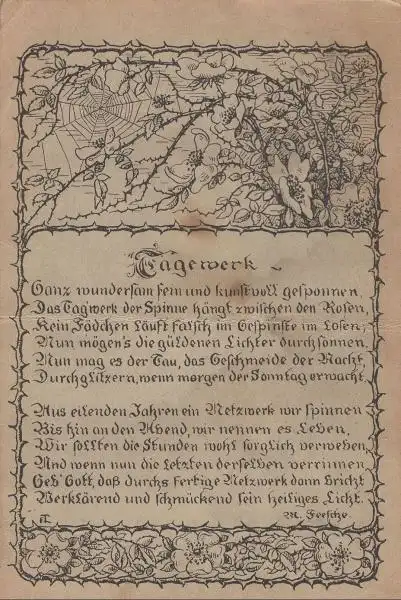 Tagewerk
Ganz wundersam fein und kunstvoll gesponnen,
Das Tag'werk der Spinne hängt zwischen den Rosen,
Kein Fädchen läuft falsch im Gespinste im Losen,
Nun mögen's die güldenen Lichter durchsonnen,
Nun mag es der Tau, das Geschmeide der Nacht
Durchglitzern, wenn morgen der Sonntag erwacht.
Aus eilenden Jahren ein Netzwerk wir spinnen
Bis hin an den Abend, wir nennen es Leben,
Wir sollten die Stunden wohl sorglich verweben,
Und wenn nun die letzten derselben verrinnen
Geb' Gott, daß durchs fertige Netzwerk dann bricht
Verklärend und schmückend sein heiliges Licht.
M. Feesche.